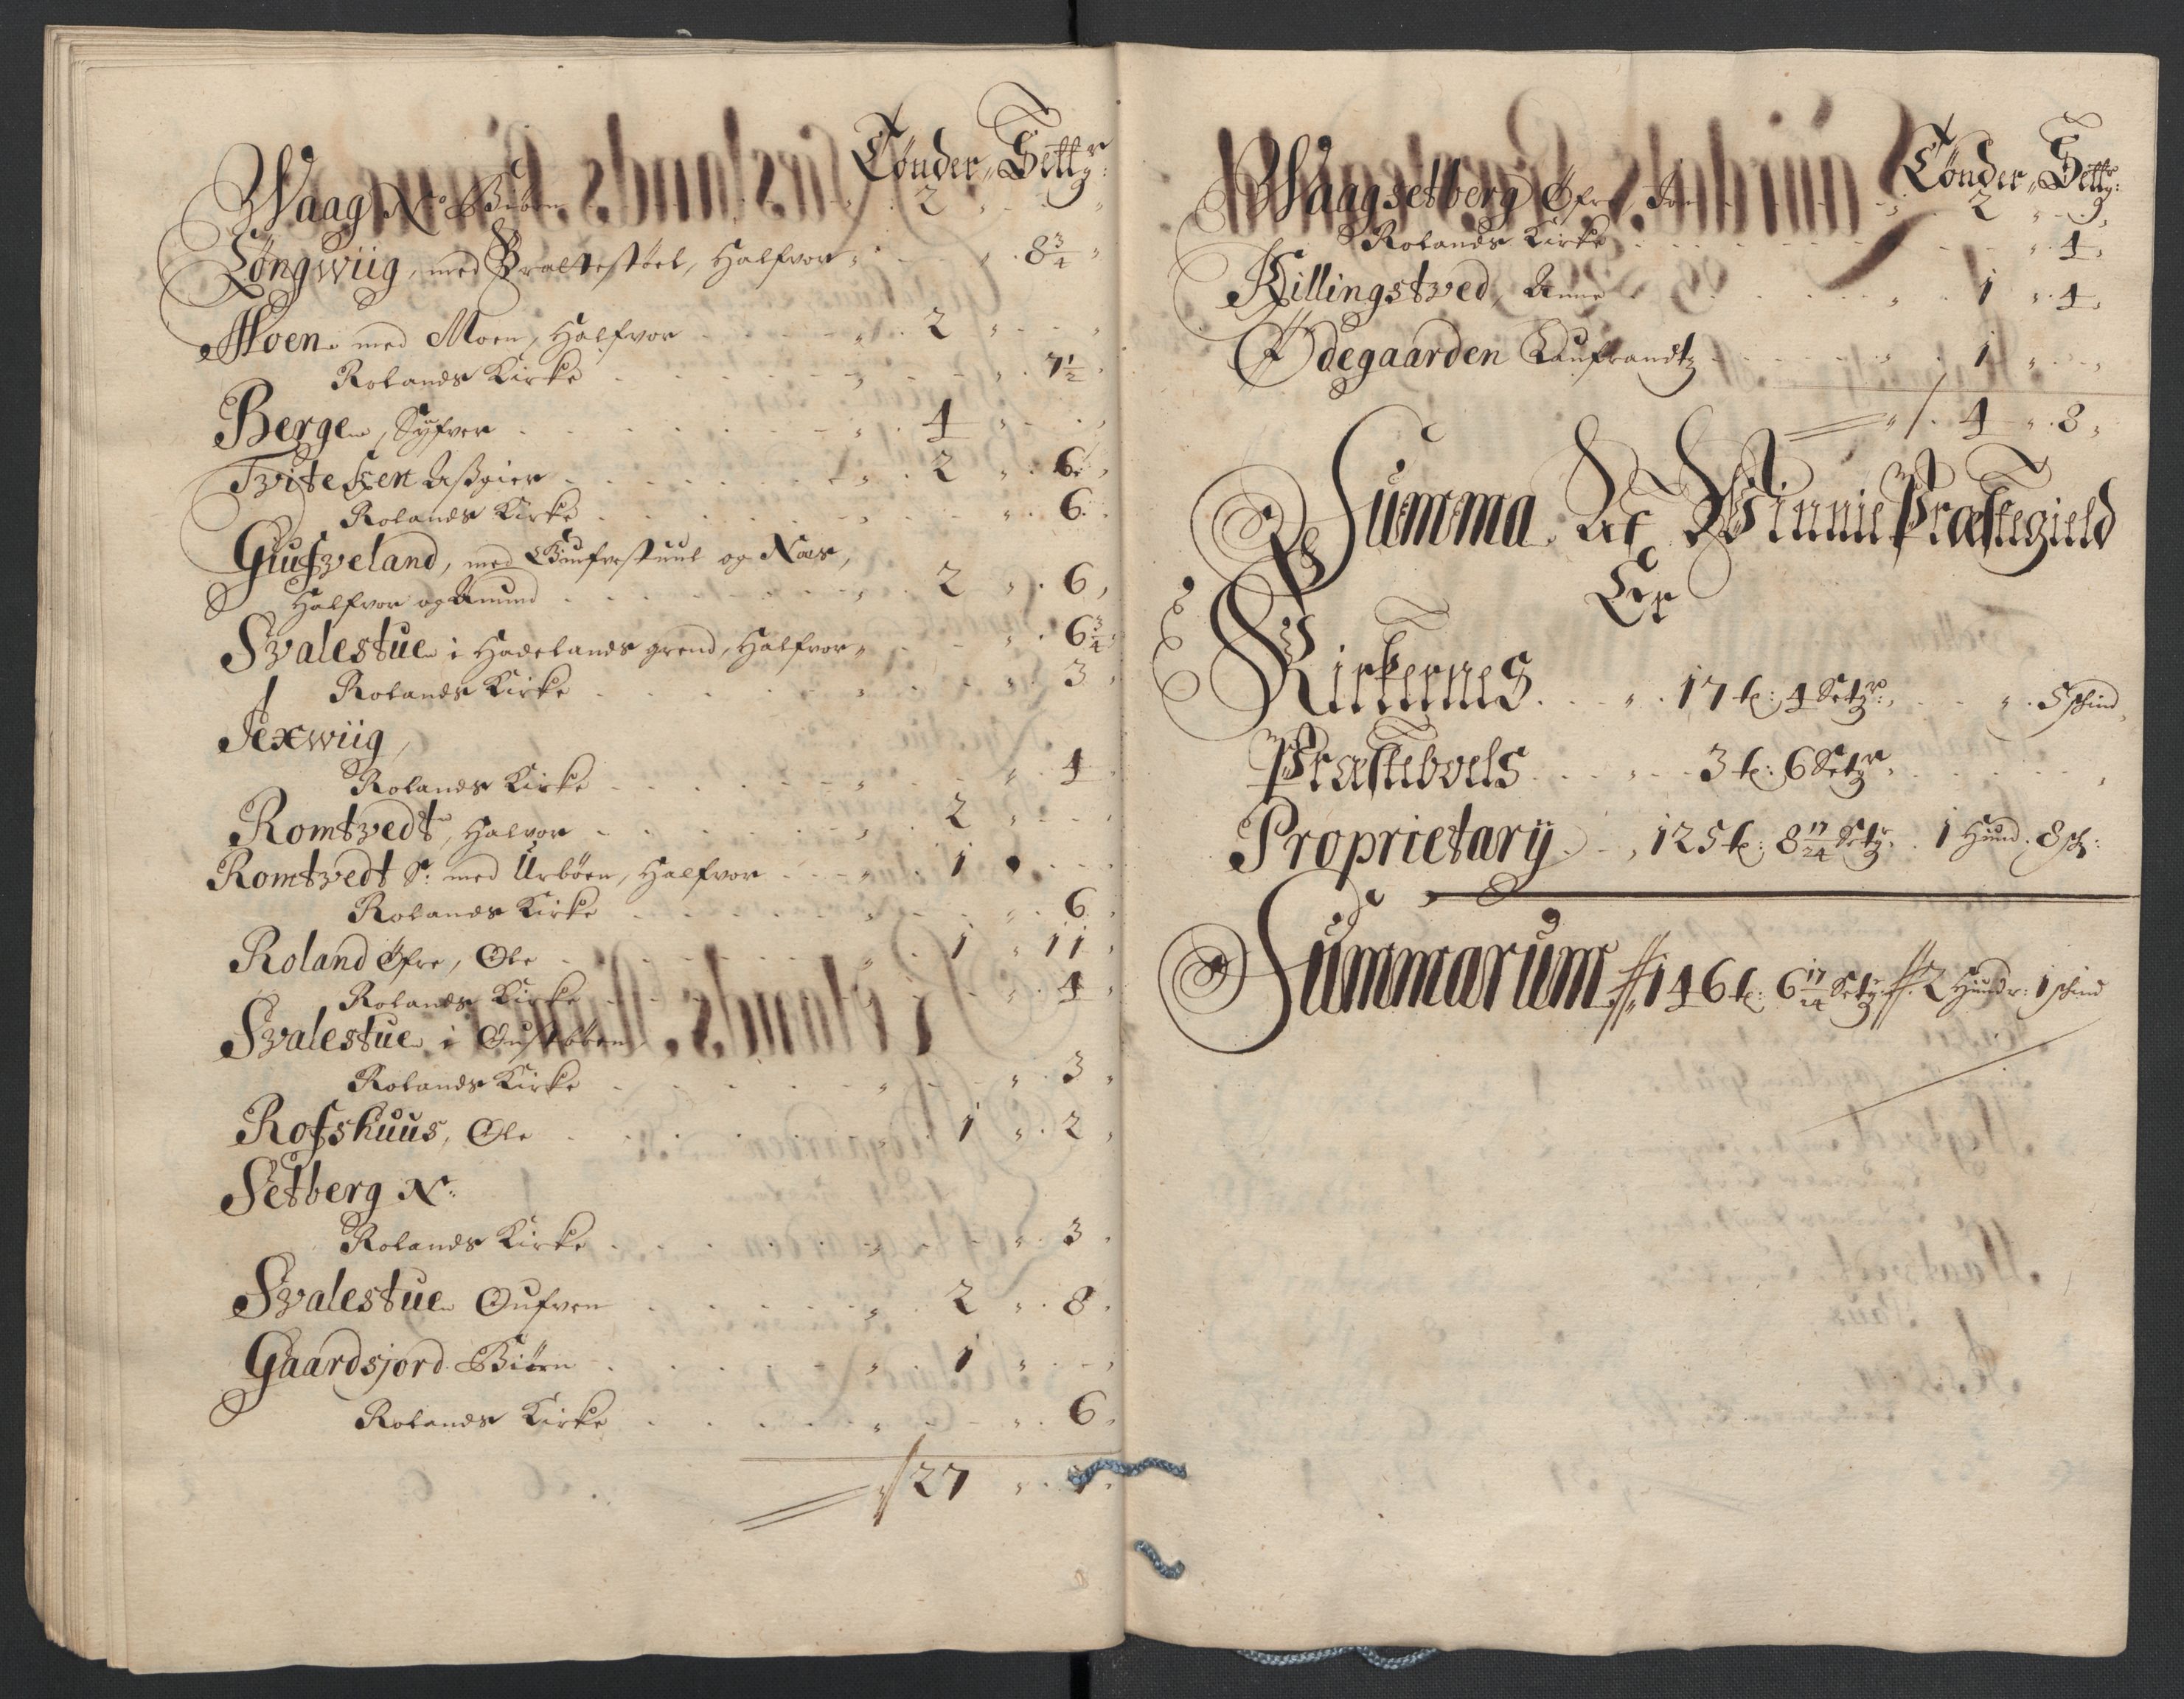 Tønder, Settgr:
Waag N: Biørn 2
Løngwiig, med Braatestøel, Halfvor 8 3/4
Moen med Moen, Halfvor 2
Rolands Kirke 7 1/2
Berge, Syfver 4
Tvitesen Aßgier 2 6
Rolands Kirke 6
Giufzveland, med Biufvestuul og Næs,
Halfvor og Amund 2 6
Svalestue i Hadelands grend, Halfvor 6 3/4
Rolands Kirke 3
Jexwiig,
Rolands Kirke 4
Romtvedt, Halvor 2
Romtvedt S: med Urbøen, Halfvor 1
Rolands Kirke 6
Roland Øfre, Ole 1 11
Rolands Kirke 4
Svalestue i
Rolands Kirke 3
Rofshuus, Ole 1 2
Setberg N:
Rolands Kirke 3
Svalestue Oufven 2 8
Gaardsjord Biørn 1
Rolands Kirke 6
27
Tønder, Settgr:
Waagsetberg Øfre, 2
Rolands Kirke 4
Killingstved, Anne 1 4
Ødegaarden Laufrandtz 1
4 8
Summa Af Winnie Præstegield
Er
Kirkernes 17 t: 4 Setgr: 5 skind
Præstebols 3 t: 6 Setgr
Proprietarij 125 t: 8 17/24 Setgr 1 Hund. 8 sk:
Summarum 146 t: 6 17/24 Setgr 2 Hundr: 1 skind